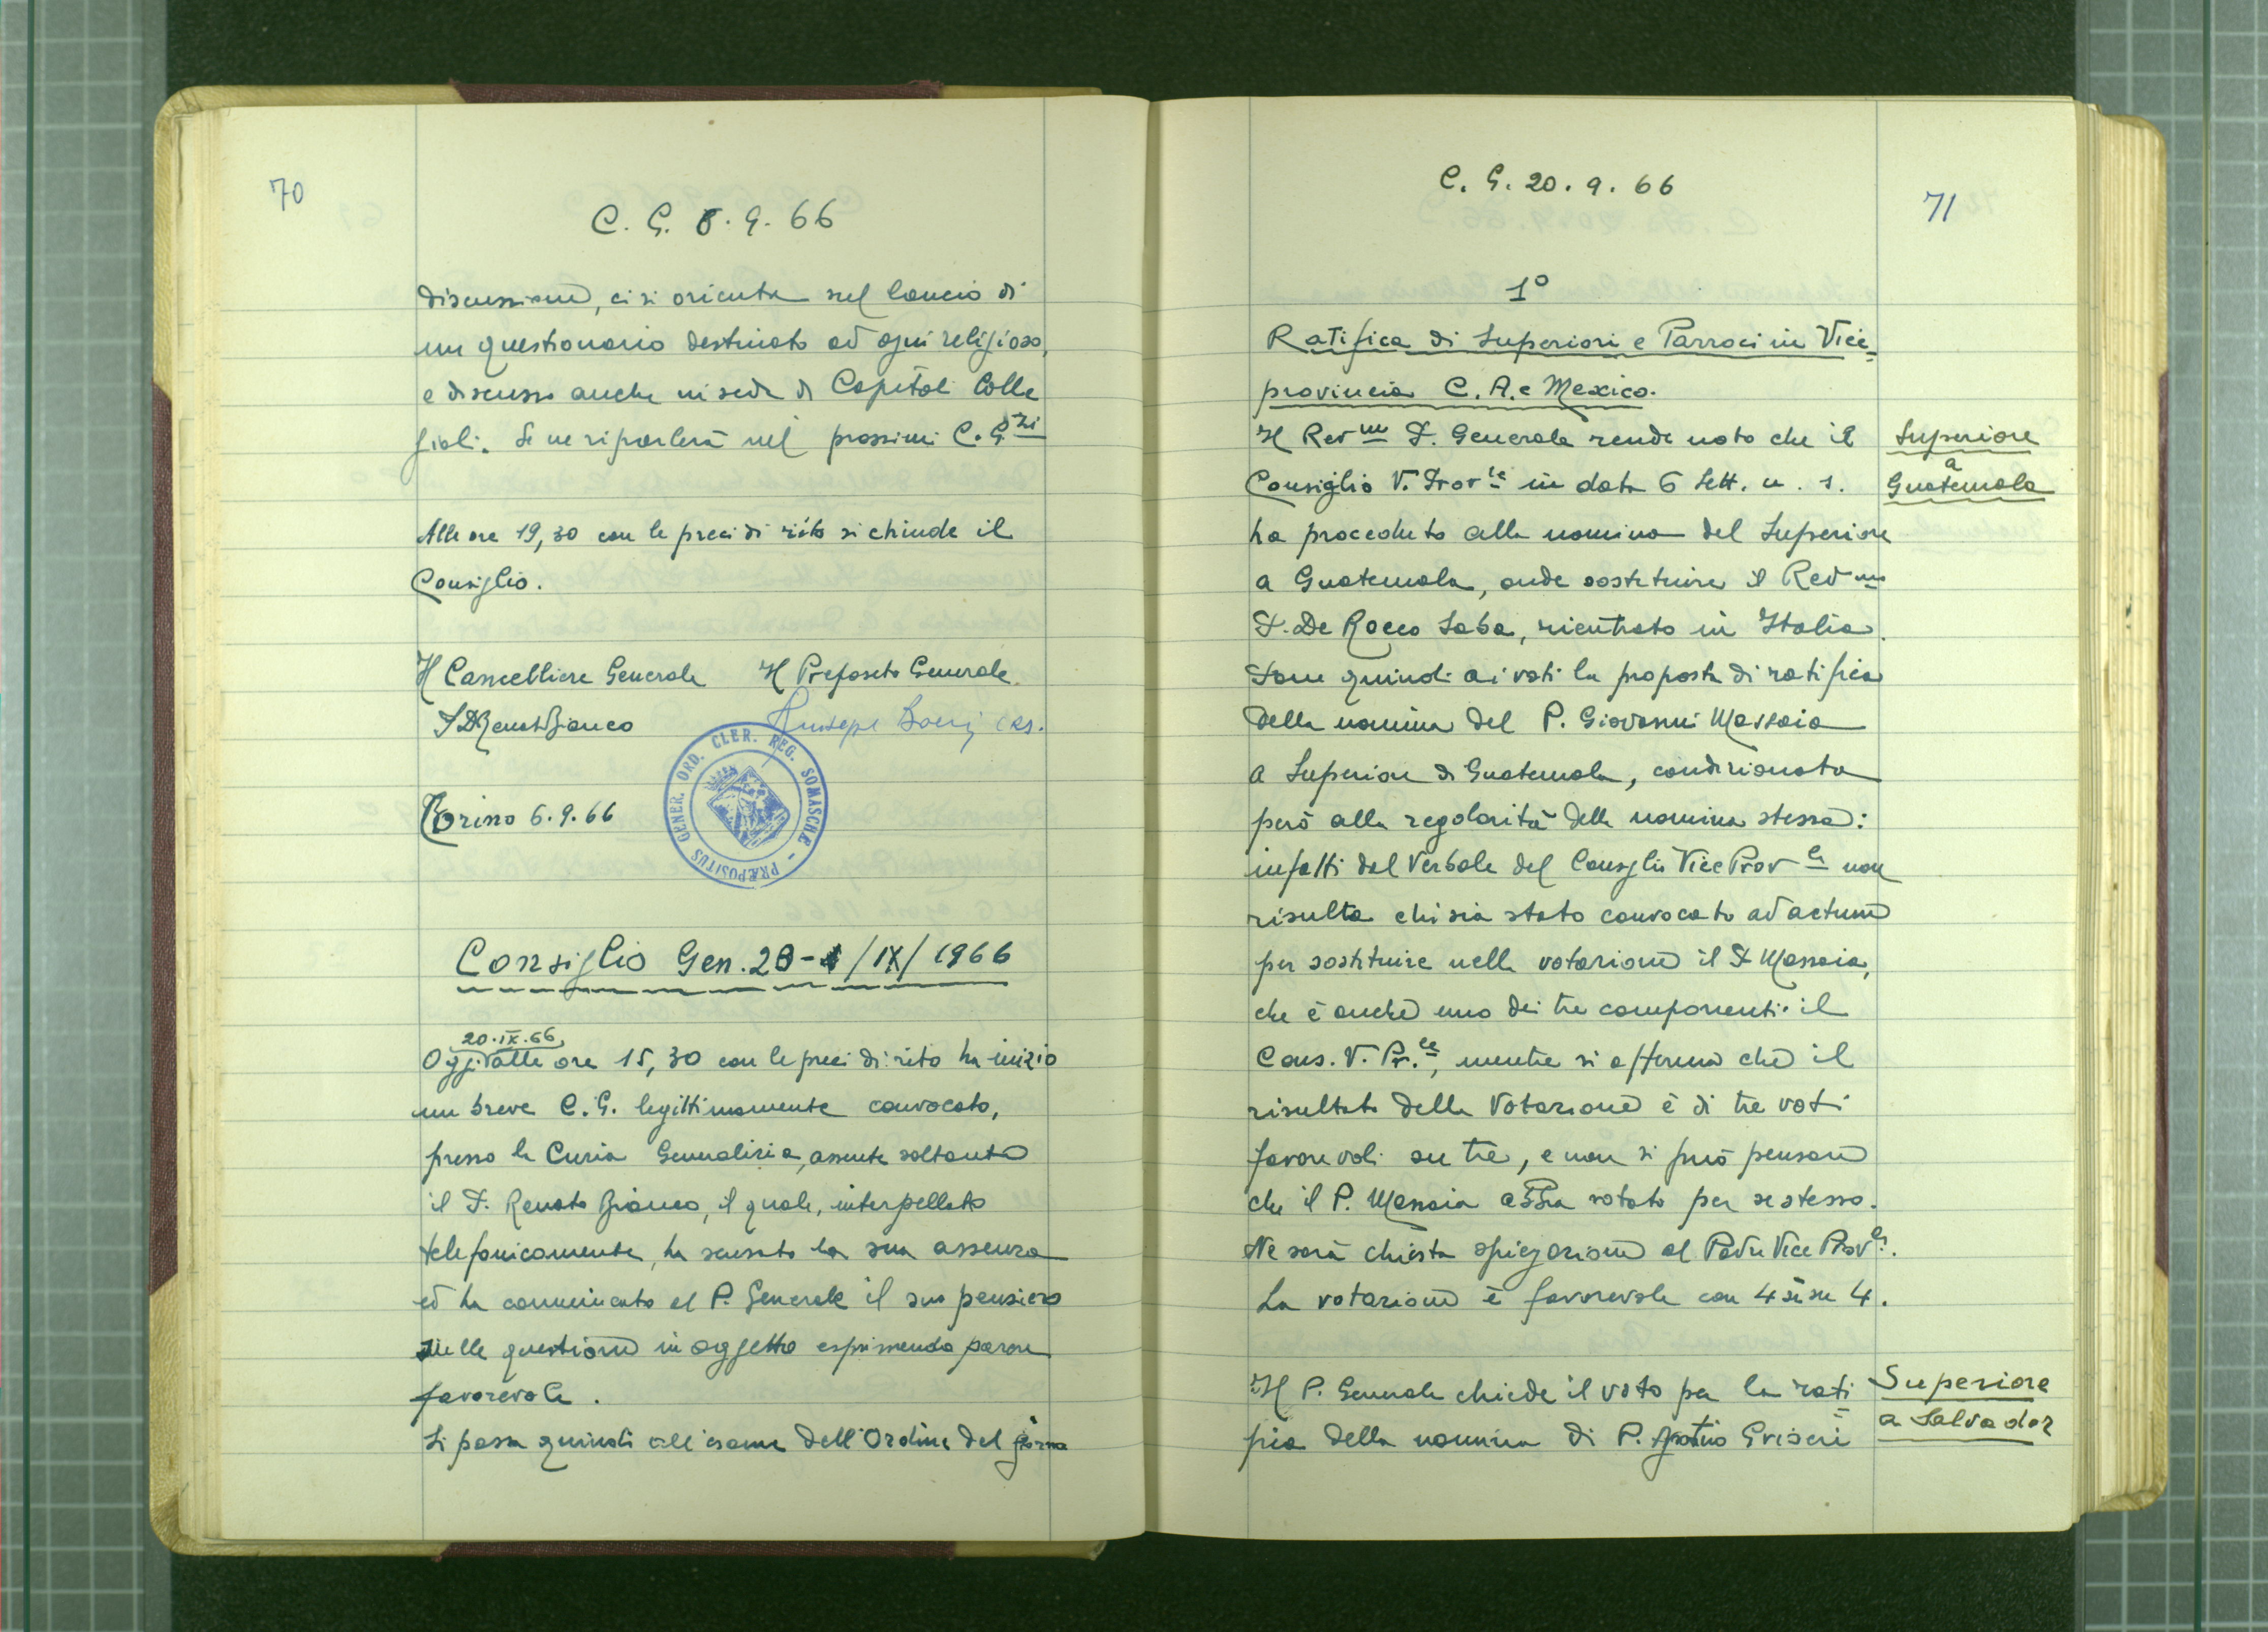 70
C. G. 6.9.66
discussione, ci si orienta sul lancio di
un questionario destinato ad ogni religioso,
e discusso anche in sede di Capitoli Colle
giali. Se ne riparlerà nel prossimi C. G.zi
Alle ore 19,30 con le preci di rito si chiude il
Consiglio.
Il Cancelliere Generale Il Preposito Generale
P. D. Renato Bianco Giuseppe Boeri crs.
PRÆPOSITUS GENER. ORD. CLER. REG. SOMASCHÆ
Torino 6.9.66
Consiglio Gen. 20-/IX/1966
20.IX.66
Oggi alle ore 15,30 con le preci di rito ha inizio
un breve C.G. legittimamente convocato,
presso la Curia Generalizia, assente soltanto
il P. Renato Bianco, il quale, interpellato
telefonicamente, ha scusato la sua assenza
ed ha comunicato al P. Generale il suo pensiero
sulle questioni in oggetto esprimendo parere
favorevole.
Si passa quindi all'esame dell'Ordine del giorno
C. G. 20.9.66
71
1º
Ratifica di Superiori e Parroci in Vice=
provincia C. A. e Mexico.
Il Revmo P. Generale rende noto che il
Consiglio V. Prov.le in data 6 Sett. u. s.
ha proceduto alla nomina del Superiore
a Guatemala, onde sostituire il Revmo
P. De Rocco Saba, rientrato in Italia.
Pone quindi ai voti la proposta di ratifica
della nomina del P. Giovanni Massaia
a Superiore di Guatemala, condizionata
però alla regolarità della nomina stessa:
infatti dal Verbale del Consiglio Vice Prov.le non
risulta chi sia stato convocato ad actum
per sostituire nella votazione il P. Massaia,
che è anche uno dei tre componenti il
Cons. V. Pr.le, mentre si afferma che il
risultato della votazione è di tre voti
favorevoli su tre, e non si può pensare
che il P. Massaia abbia votato per se stesso.
Ne sarà chiesta spiegazione al Padre Vice Prov.le.
La votazione è favorevole con 4 sì su 4.
Superiore
a
Guatemala
Il P. Generale chiede il voto per la rati=
fica della nomina di P. Griseri
Superiore
a Salvador